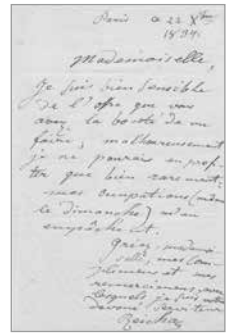 Paris ce 22 Xbre
1834.
Mademoiselle,
Je suis bien sensible
de l'ofre que vous
avez la bonté de me
faire; malheureusement
je ne pourais en profi-
ter que bien rarement,
mes ocupations (même
le dimanche) m'en
empêchent.
Gréez, mademoi-
selle, mes com-
plimens et mes
remercimens, avec
lesquels je suis votre
devoué serviteur
Reicha